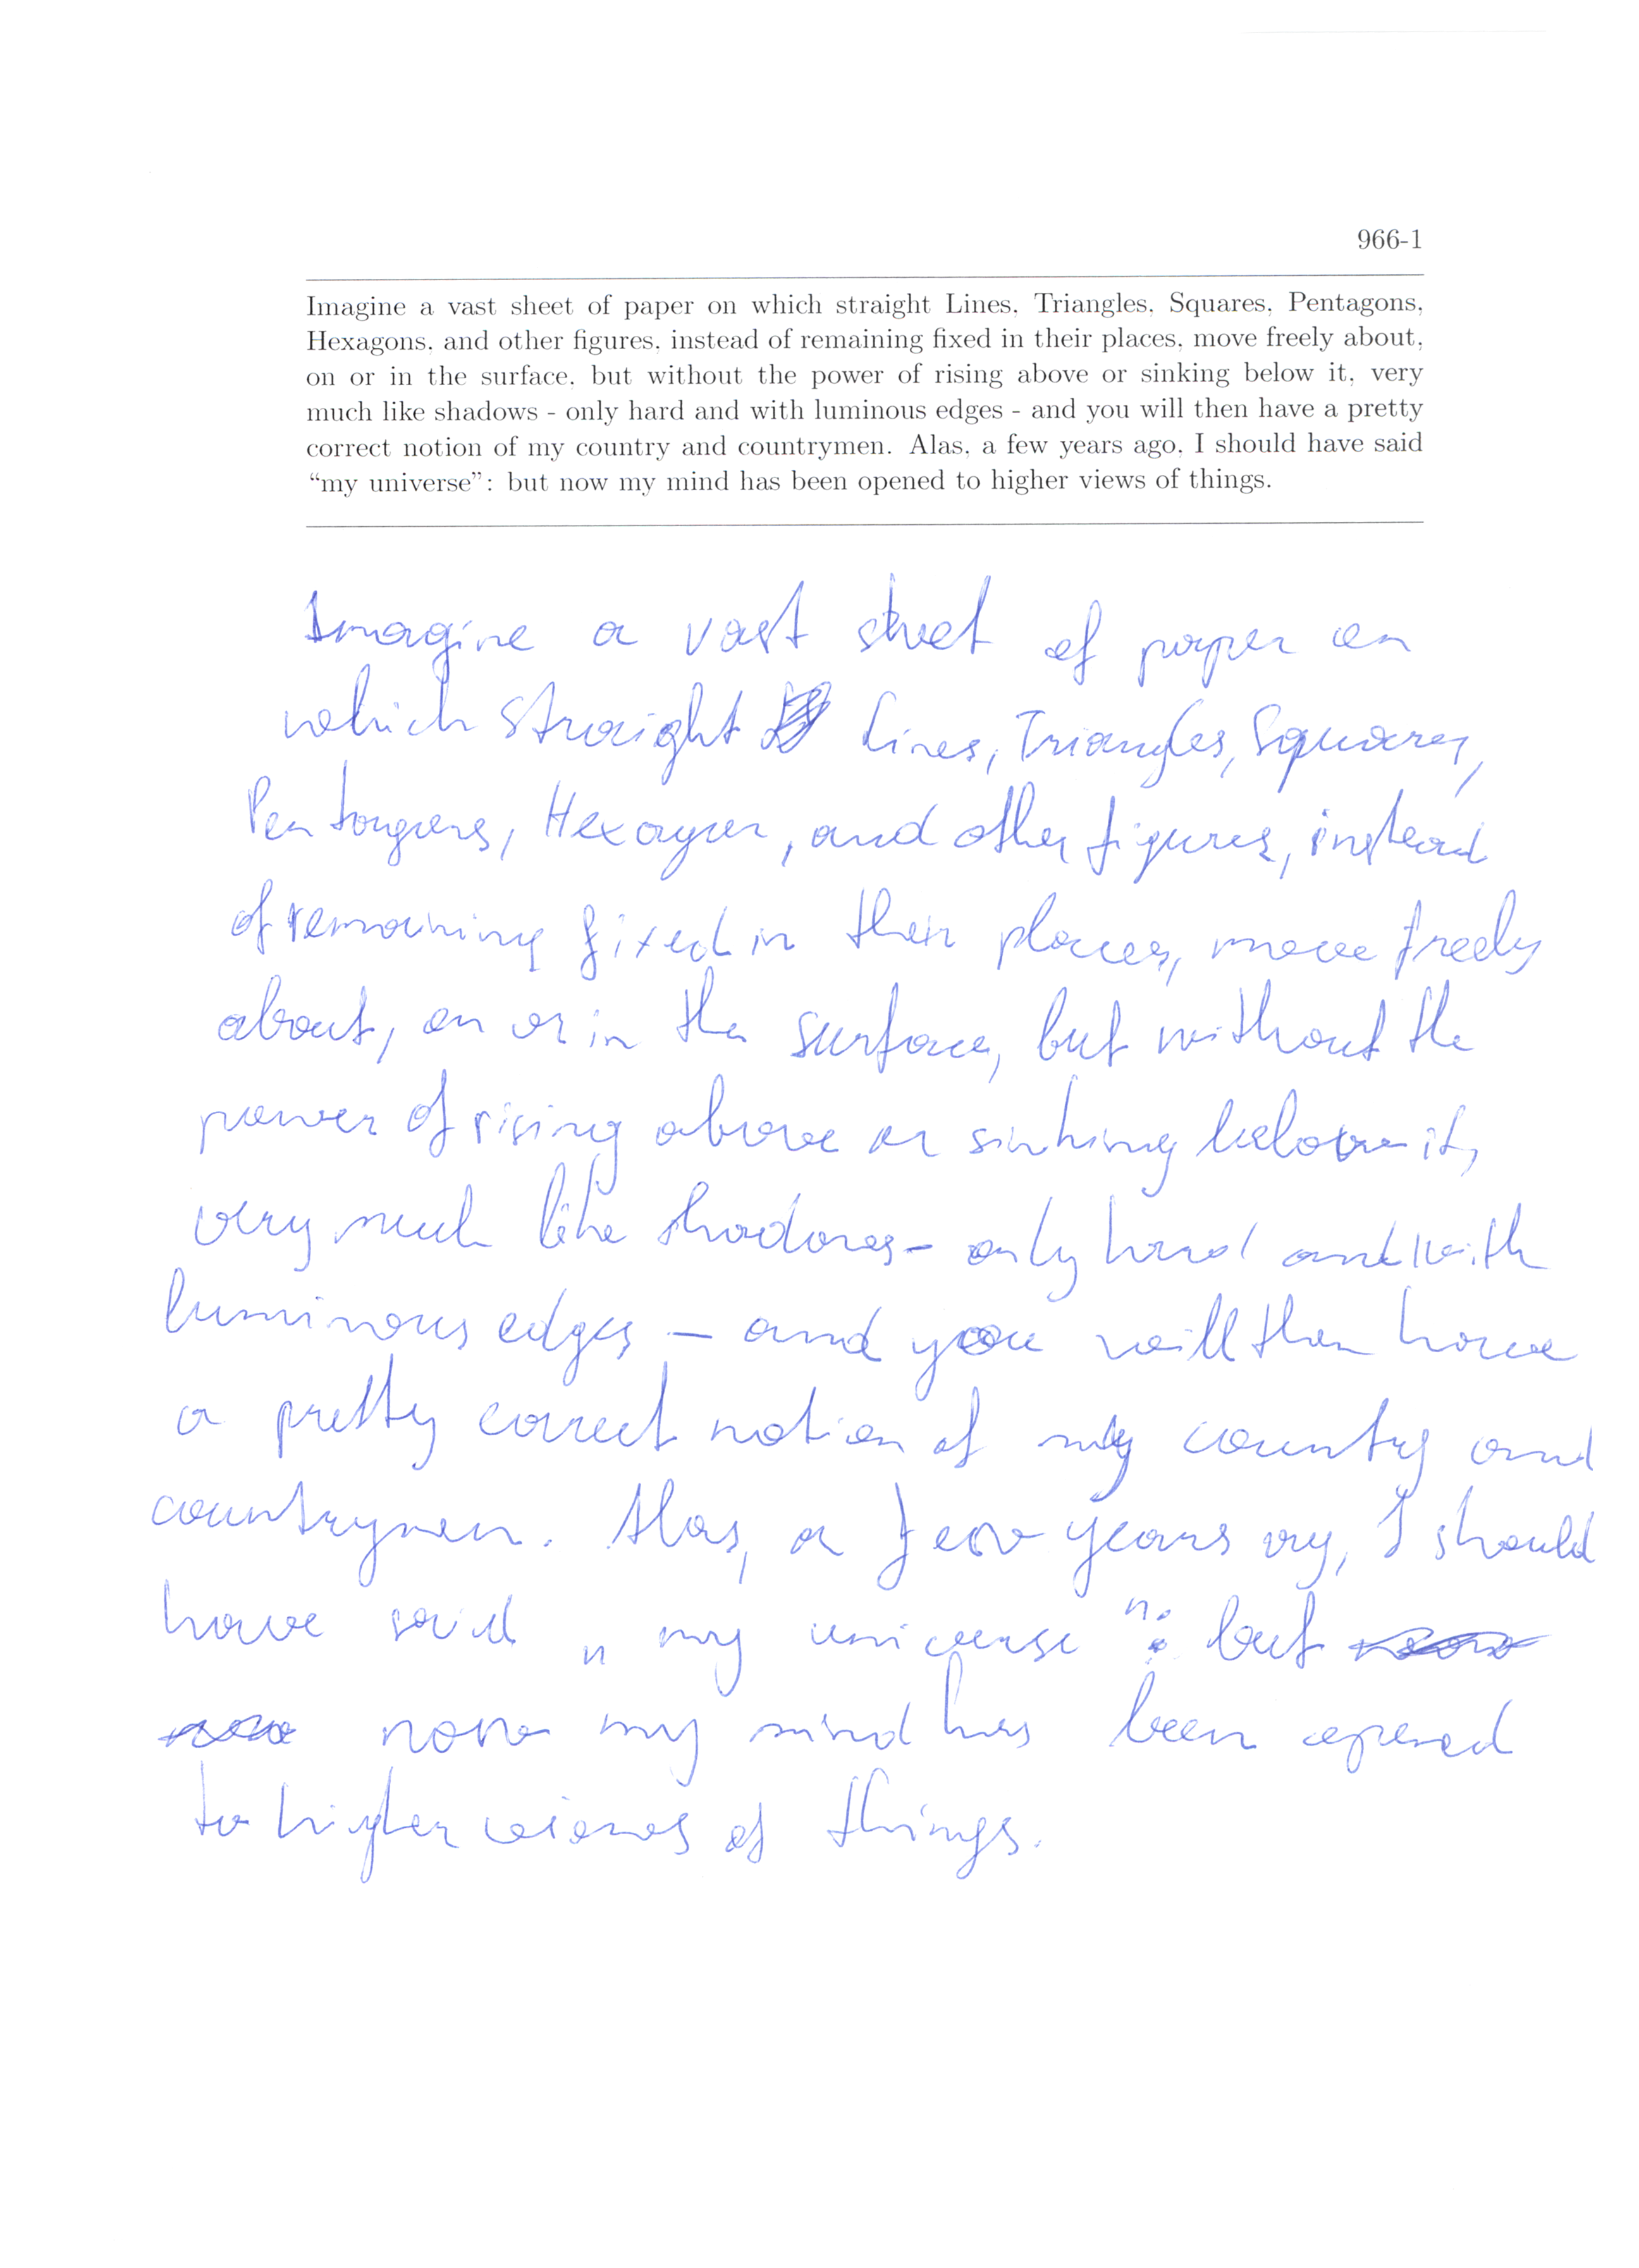 966-1
Imagine a vast sheet of paper on which straight Lines, Triangles, Squares, Pentagons,
Hexagons, and other figures, instead of remaining fixed in their places, move freely about,
on or in the surface, but without the power of rising above or sinking below it, very
much like shadows - only hard and with luminous edges - and you will then have a pretty
correct notion of my country and countrymen. Alas, a few years ago, I should have said
“my universe”: but now my mind has been opened to higher views of things.
Imagine a vast sheet of paper on
which straight Lines, Triangles, Squares,
Pentagons, Hexagon, and other figures, instead
of remaining fixed in their places, move freely
about, on or in the surface, but without the
power of rising above or sinking below it,
very much like shadows - only hard and with
luminous edges - and you will then have
a pretty correct notion of my country and
countrymen. Alas, a few years ago, I should
have said „my universe": but
now my mind has been opened
to higher views of things.